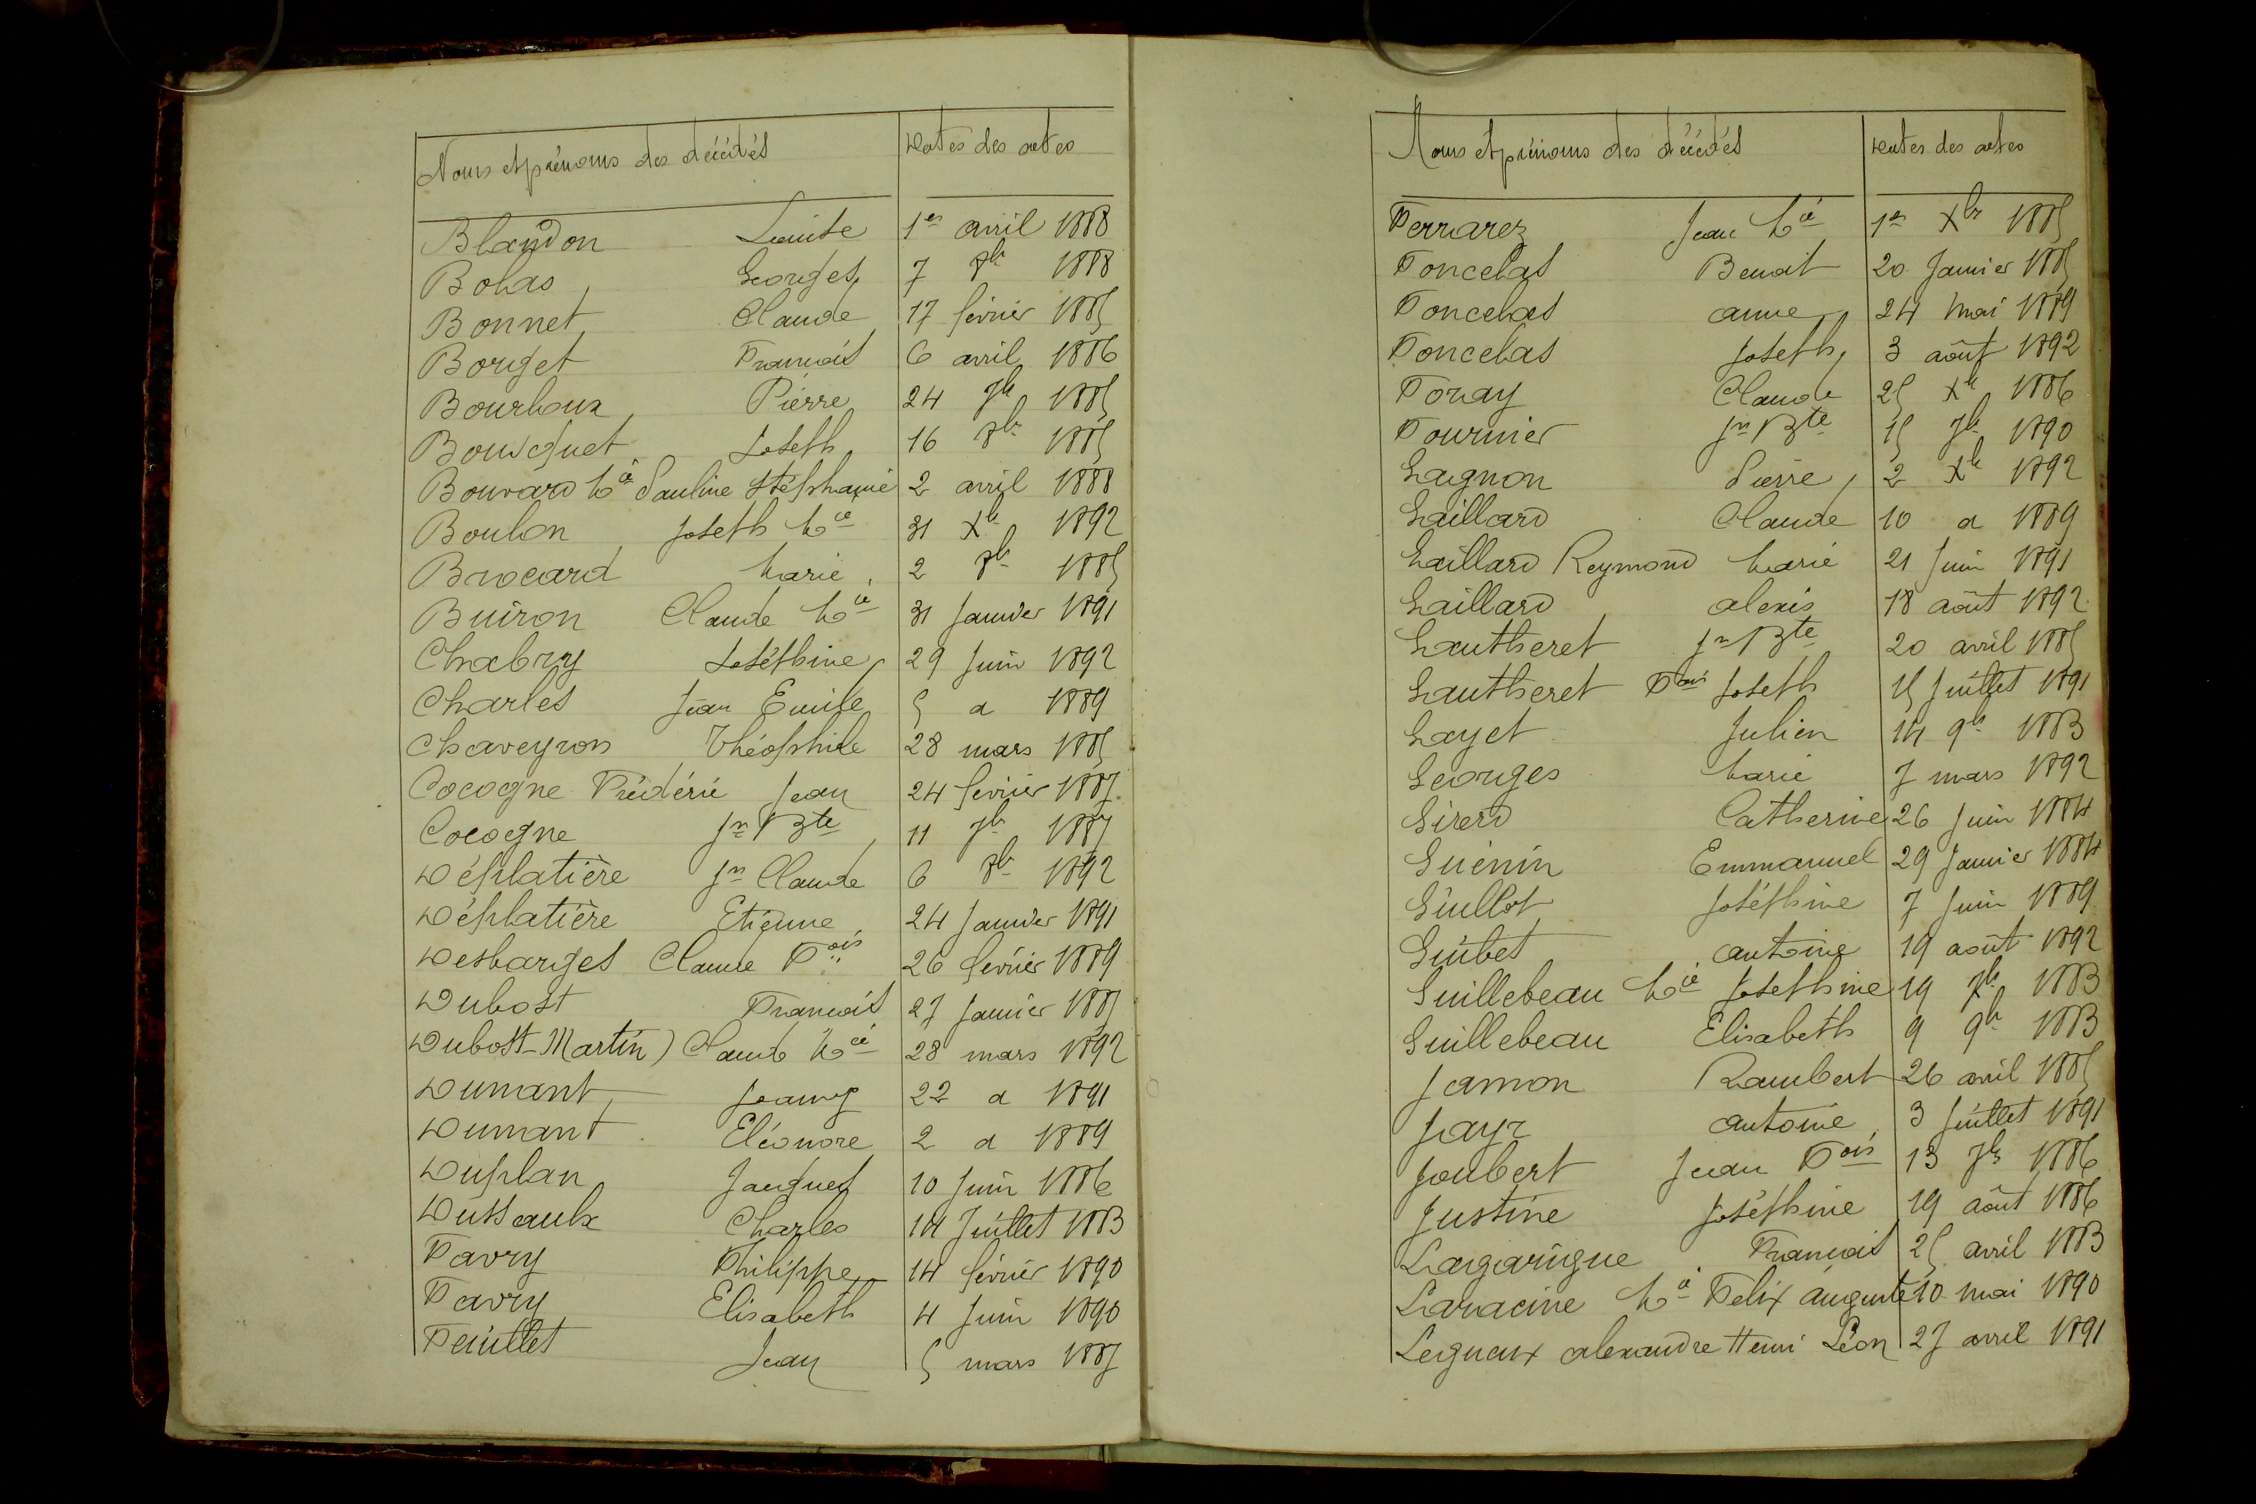 Noms et prénoms des décédés Dates des actes
Blandon Louise 1er avril 1888
Bohas Georges 7 8bre 1888
Bonnet Claude 17 février 1885
Borget François 6 avril 1886
Bourboux Pierre 24 7bre 1885
Bousquet Joseph 16 8bre 1885
Bouvard Mie Pauline Stéphanie 2 avril 1888
Boulon Joseph Mie 31 Xbre 1892
Brocard Marie 2 8bre 1885
Buiron Claude Mie 31 Janvier 1891
Chabry Joséphine 29 Juin 1892
Charles Jean Emile 5 d 1889
Chaveyron Théophile 28 mars 1885
Cocogne Frédéric Jean 24 février 1887
Cocogne Jn Bte 11 7bre 1887
Déplatière Jn Claude 6 8bre 1892
Déplatière Etienne 24 Janvier 1891
Desbarges Claude Fois 26 février 1889
Dubost François 27 Janvier 1885
Dubost-Martin) Claude Mie 28 mars 1892
Dumant Jeany 22 d 1891
Dumant Eléonore 2 d 1889
Duplan Jacques 10 Juin 1886
Dussaulx Charles 14 Juillet 1883
Favry Philippe 14 février 1890
Favry Elisabeth 4 Juin 1890
Feuillet Jean 5 mars 1887
Noms et prénoms des décédés Dates des actes
Ferrarez Jean Mie 1er Xbre 1885
Foncelas Benoit 20 Janvier 1885
Foncelas anne 24 Mai 1889
Foncelas Joseph 3 août 1892
Foray Claude 25 Xbre 1886
Fournier Jn Bte 15 7bre 1890
Gagnon Pierre 2 Xbre 1892
Gaillard Claude 10 d 1889
Gaillard Reymond Marie 21 Juin 1891
Gaillard alexis 18 août 1892
Gautheret Jn Bte 20 avril 1885
Gautheret Fois Joseph 15 Juillet 1891
Gayet Julien 14 9bre 1883
Georges Marie 7 mars 1892
Girerd Catherine 26 Juin 1884
Guénin Emmanuel 29 Janvier 1884
Guillot Joséphine 7 Juin 1889
Guibet antoine 19 août 1892
Guillebeau Mie Josephine 19 Xbre 1883
Guillebeau Elisabeth 9 9bre 1883
Jamon Rambert 26 avril 1885
Jayr antoine 3 Juillet 1891
Joubert Jean Fois 13 7bre 1886
Justine Joséphine 19 août 1886
Lagarigue François 25 avril 1883
Laracine Mie Felix auguste 10 mai 1890
Legnaux alexandre Henri Léon 27 avril 1891